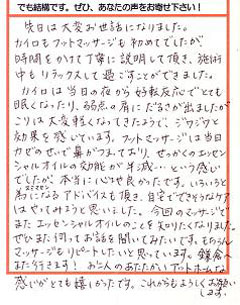 でも結構です。ぜひ、あなたの声をお寄せ下さい!
先日は大変お世話になりました。
カイロもフットマッサージも初めてでしたが、
時間をかけて丁寧に説明して頂き、施術
中もリラックスして過ごすことができました。
カイロは当日の夜から好転反応でとても
眠くなったり、弱点の肩にだるさが出ましたが
こりは大変軽くなってきたようで、ジワジワと
効果を感じています。フットマッサージは当日
カゼのせいで鼻がつまっており、せっかくのエッセン
シャルオイルの効能が半減…という感じ
でしたが、本当に心地良かったです。いろいろと
為になるアドバイスも頂き、自宅でできそうなケア
はやってみようと思いました。今回のマッサージで
また エッセンシャルオイルのことを知りたくなりました。
ぜひまた伺ってお話を聞いてみたいです。もちろん
マッサージもリピートしたいと思っています。
また行きます! お二人のあたたかいアットホームな
感じがとても嬉しかったです。これからもよろしくお願い
します。